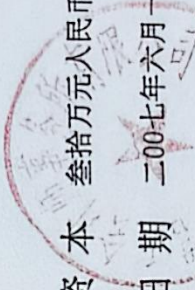 资 本 叁拾万元人民币
日 期 二00七年六月一